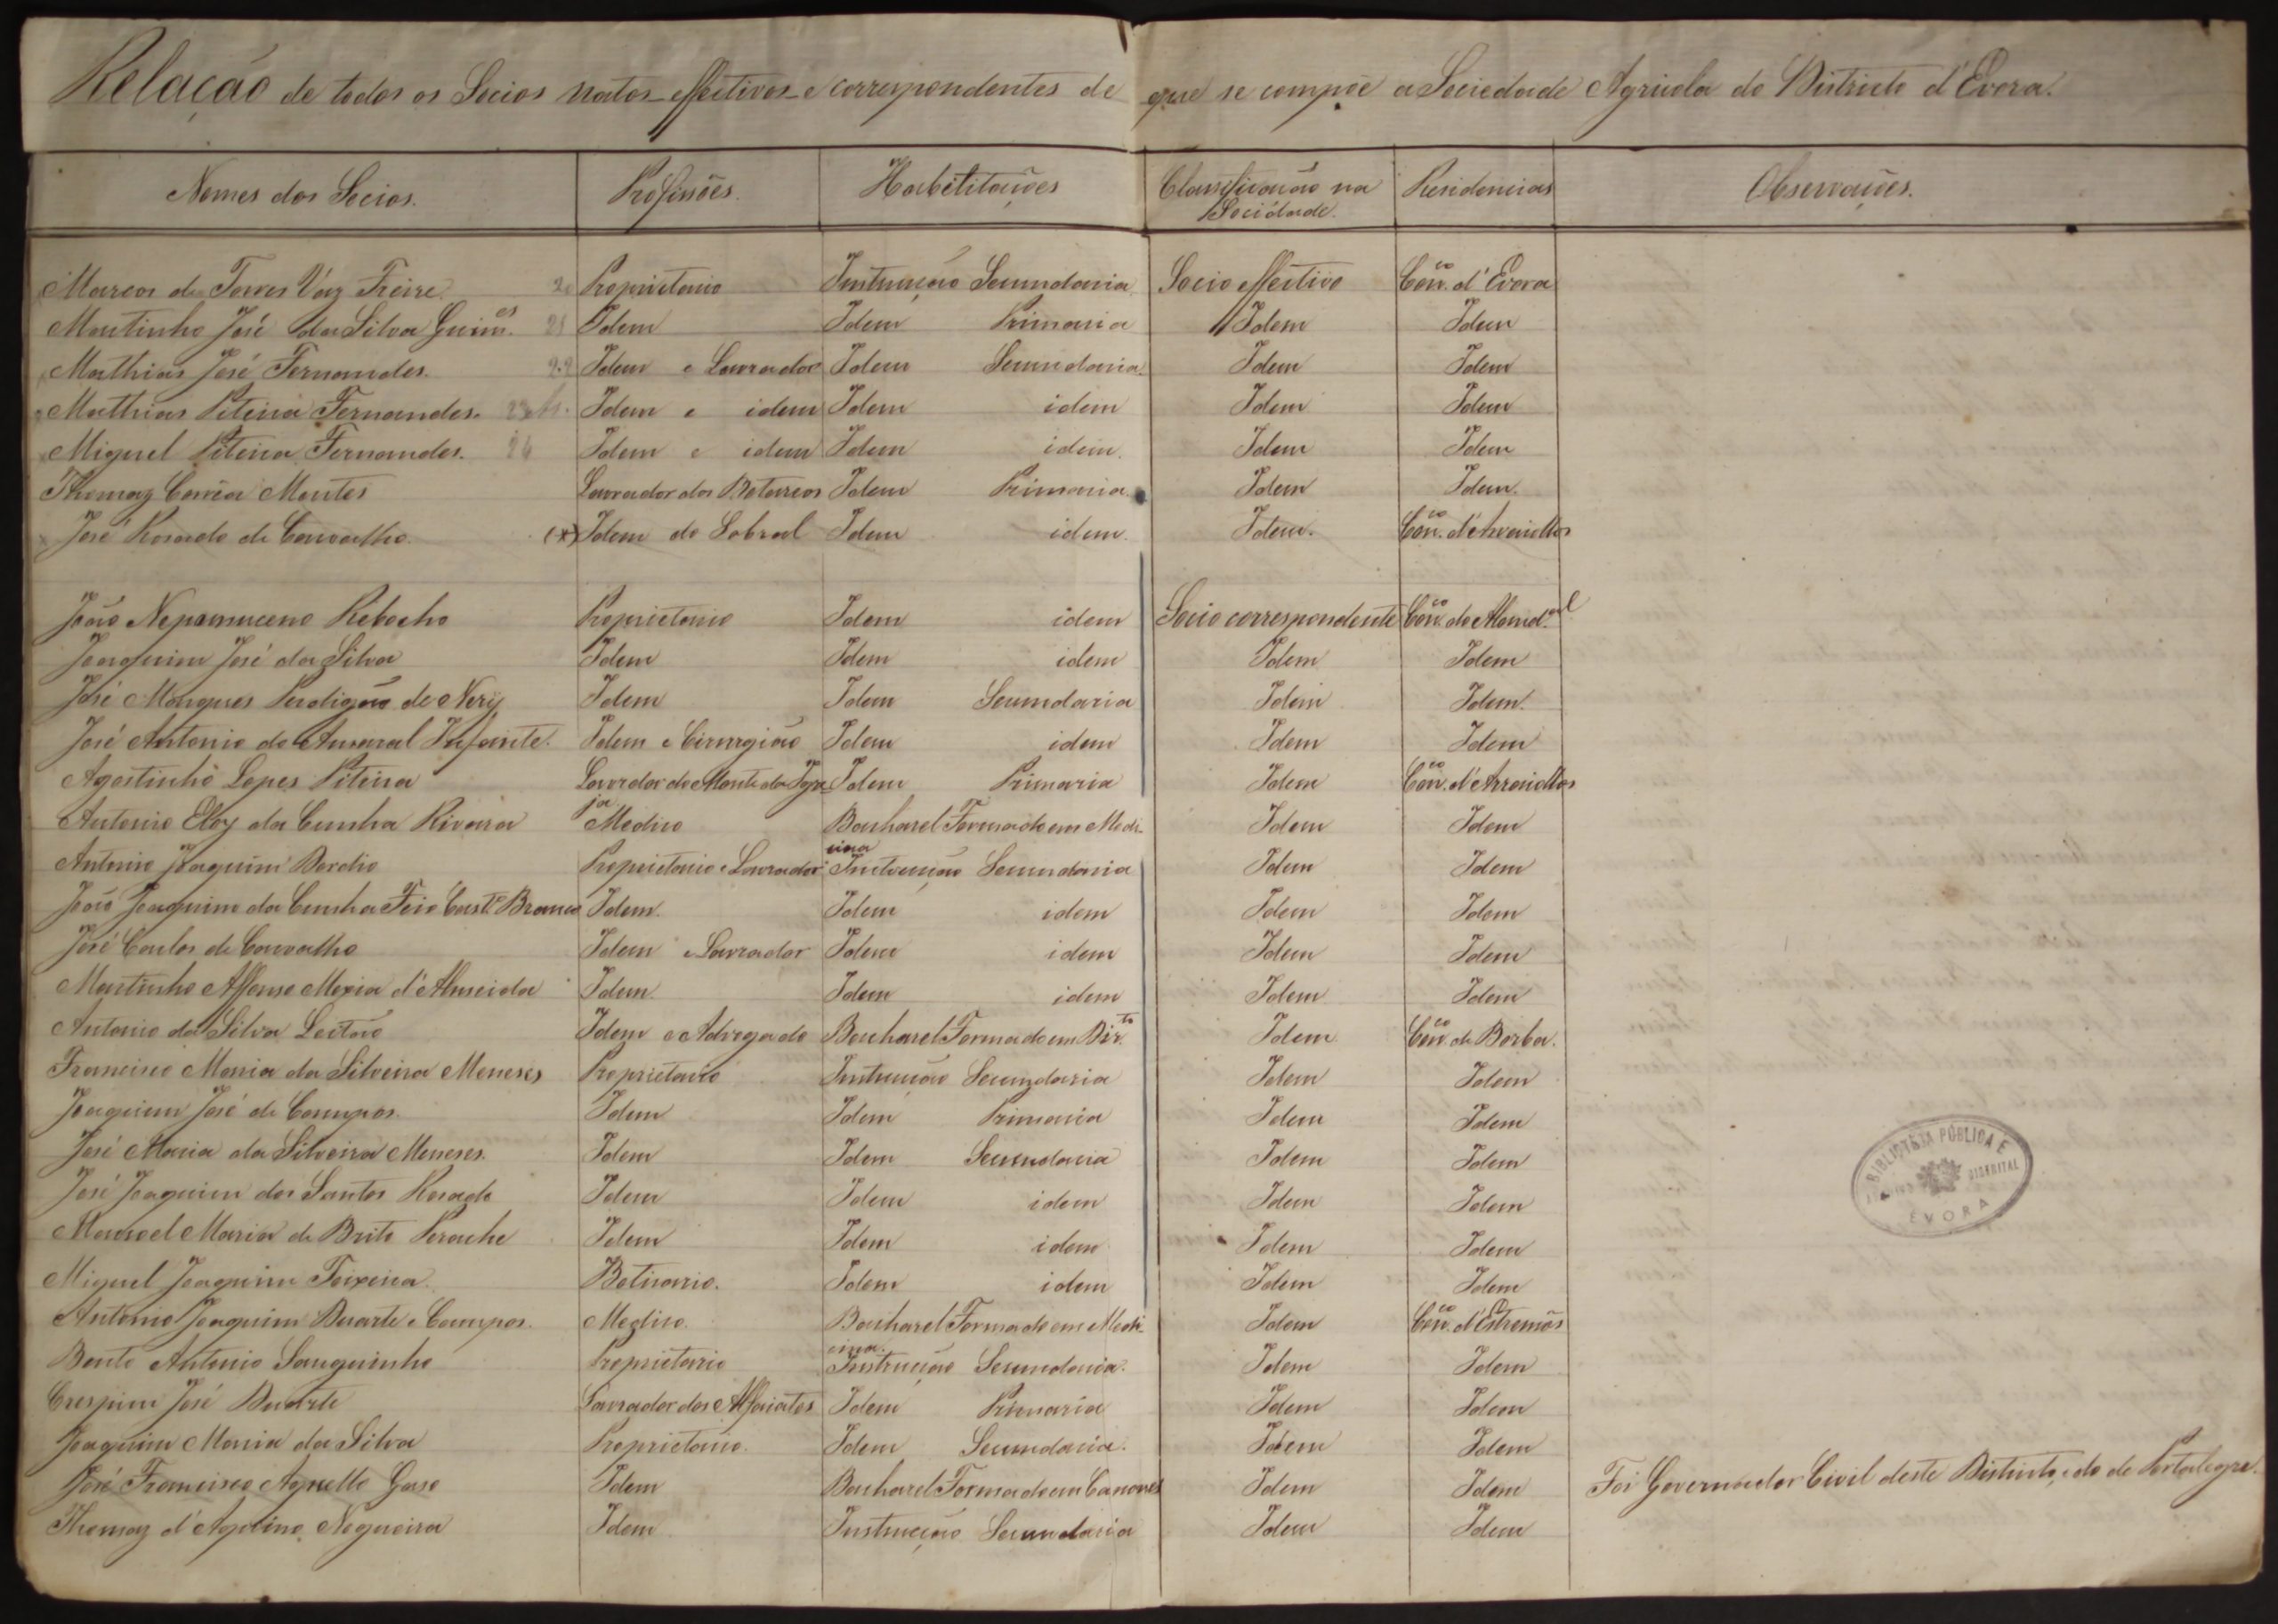 Relação de todos os Socios natos effectivos e correspondentes de que se compoe a Sociedade Agricola do Districto d'Evora.
Nomes dos Socios. Profissões. Habelitações Classificação na Residencias Observações.
Sociedade.
Marcos de Torres Váz Freire. 20 Proprietario Instrucção Secundaria Socio effectivo Con.co d'Evora
Martinho José da Silva Guim.es 21 Idem Idem Primaria Idem Idem
Mathias José Fernandes. 22 Idem e Lavrador Idem Secundaria. Idem Idem
Mathias Piteira Fernandes. 23 Idem e idem Idem idem Idem Idem
Miguel Piteira Fernandes. 24 Idem e idem Idem idem. Idem Idem
Thomaz Corrêa Montes Lavrador dos Idem Primaria. Idem Idem.
José Rosado de Carvalho. (x) Idem do Sobral Idem idem. Idem. Con.co d'Arraiollos
João Nepomuceno Rebocho Proprietario Idem idem Socio correspondente Con.co do Aland.al
Joaquim José da Silva Idem Idem idem Idem Idem
José Marques Perdigão de Nery Idem Idem Secundaria Idem Idem.
José Antonio do Amaral Infante. Idem e Cirurgião Idem idem Idem Idem
Agostinho Lopes Piteira Lavrador do Monte da Igre Idem Primaria Idem Con.co d'Arraiollos
ja
Antonio Eloy da Cunha Rivara Medico Bacharel Formado em Medi- Idem Idem
cina
Antonio Joaquim Dordio Proprietario e Lavrador Instrucção Secundaria Idem Idem
João Joaquim da Cunha Feio Cast.º Branco Idem. Idem idem Idem Idem
José Carlos de Carvalho Idem e Lavrador Idem idem Idem Idem
Martinho Affonso Mexia d'Almeida Idem. Idem idem Idem Idem
Antonio da Silva Leitão Idem e Advogado Bacharel Formado em Dir.to Idem Con.co de Borba.
Francisco Maria da Silveira Meneses Proprietario Instrucção Secundaria Idem Idem
Joaquim José de Campos. Idem Idem Primaria Idem Idem
José Maria da Silveira Meneses. Idem Idem Secundaria Idem Idem
José Joaquim dos Santos Rosado Idem Idem idem Idem Idem
Manoel Maria de Brito Idem Idem idem Idem Idem
Miguel Joaquim Teixeira. Boticario. Idem idem Idem Idem
Antonio Joaquim Duarte e Campos. Medico. Bacharel Formado em Medi- Idem Con.co d'Estremôs
cina.
Bento Antonio Sanguinho Proprietario Instrucção Secundaria. Idem Idem
Crespim José Duarte Lavrador dos Alfaiates Idem Primaria Idem Idem
Joaquim Maria da Silva Proprietario. Idem Secundaria. Idem Idem
José Francisco Idem Bacharel Formado em Canones Idem Idem Foi Governador Civil deste Districto, e do de Portalegre.
Thomaz d'Aquino Nogueira Idem Instrucção Secundaria Idem Idem
BIBLIOTECA PUBLICA E
ARQUIVO DISTRITAL
EVORA